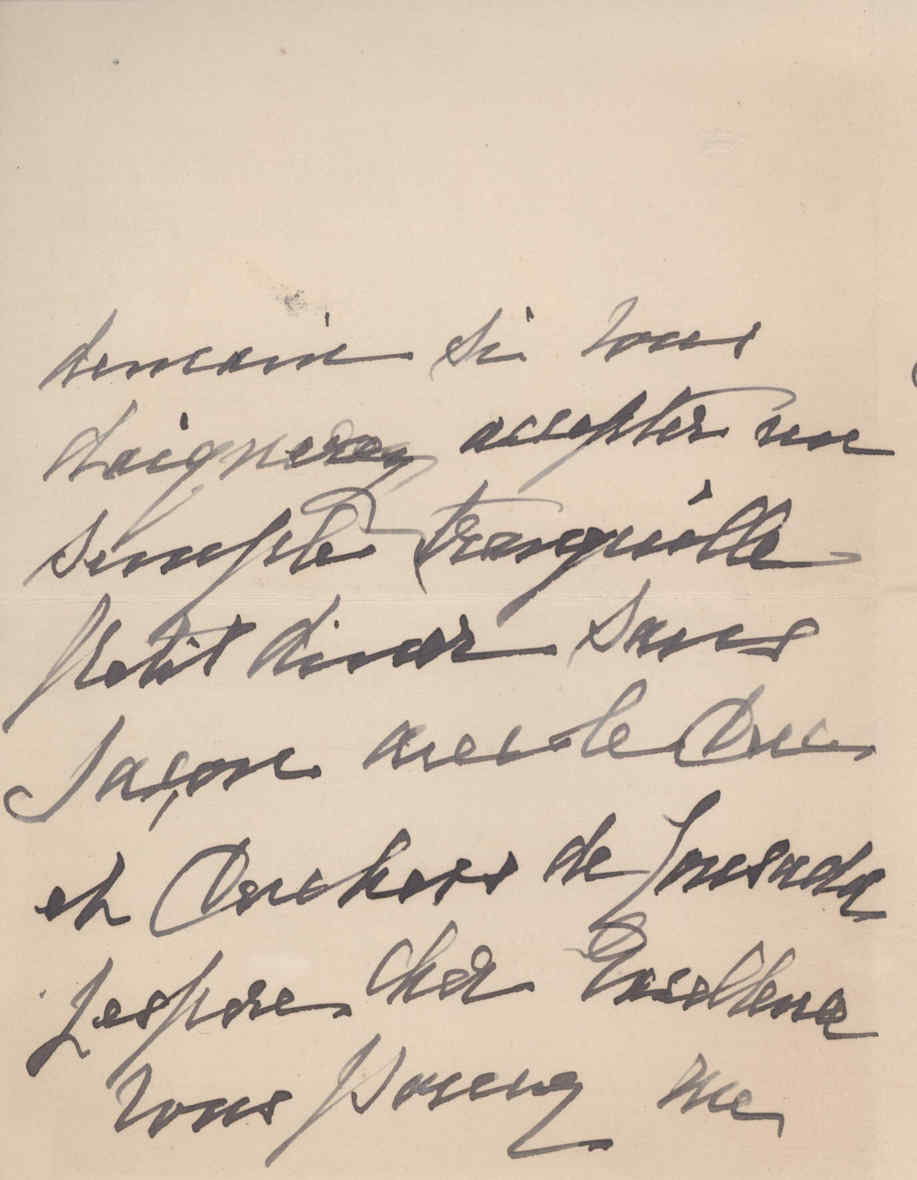 demain si vous
daignerez accepter un
simple tranquille
petit diner sans
façon avec le Duc
et Duchess de Lousada
Jespere cher Excellence
vous pouvez me